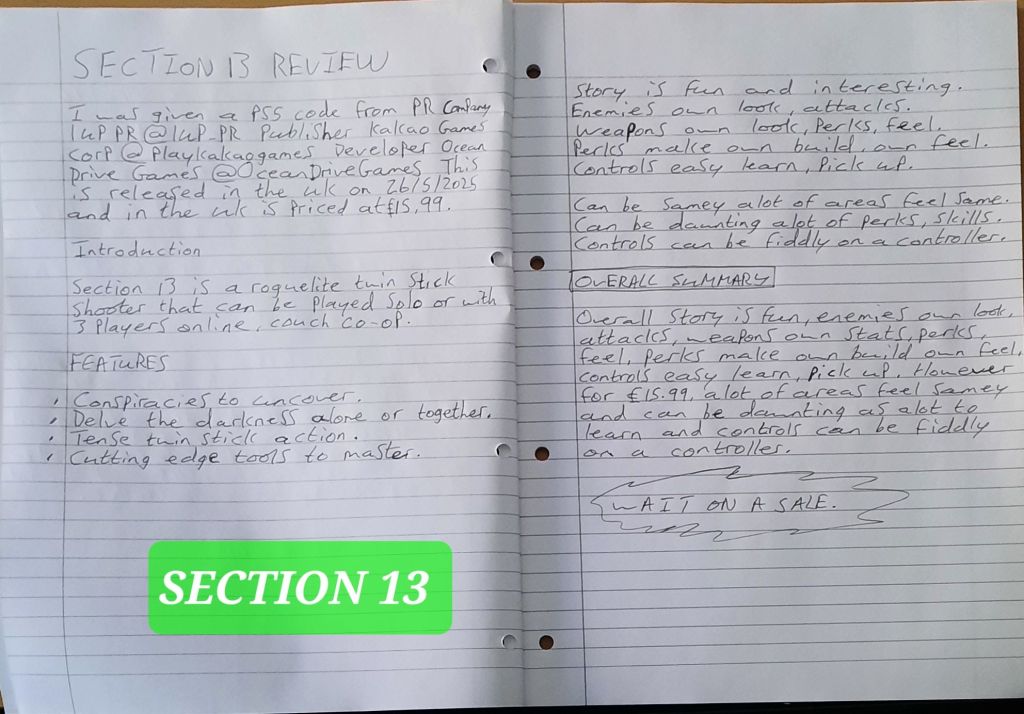 SECTION 13 REVIEW
I was given a PS5 code from PR Company
1UP PR @1UP-PR Publisher Kakao Games
Corp @Playkakaogames Developer Ocean
Drive Games @OceanDriveGames This
is released in the uk on 26/5/2025
and in the uk is Priced at £15.99.
Introduction
Section 13 is a roguelite twin stick
shooter that can be Played Solo or with
3 Players online, couch co-op.
FEATURES
• Conspiracies to uncover.
• Delve the darkness alone or together.
• Tense twin stick action.
• Cutting edge tools to master.
SECTION 13
Story is fun and interesting.
Enemies own look, attacks.
Weapons own look, Perks, feel.
Perks make own build, own feel.
Controls easy learn, Pick up.
Can be Samey alot of areas feel Same.
Can be daunting alot of perks, skills.
Controls can be fiddly on a controller.
OVERALL SUMMARY
Overall Story is fun, enemies own look,
attacks, weapons own stats, perks,
feel, Perks make own build own feel,
controls easy learn, Pick up. However
for £15.99, alot of areas feel Samey
and can be daunting as alot to
learn and controls can be fiddly
on a controller.
WAIT ON A SALE.